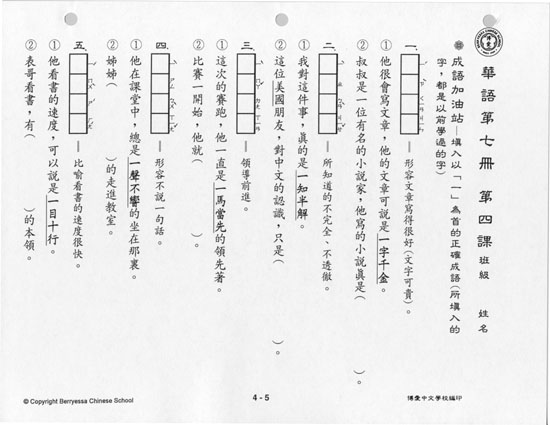 華語第七冊 第四課 班級 姓名
成語加油站—填入以「一」為首的正確成語(所填入的
字,都是以前學過的字)
一、
=形容文章寫得很好(文字可貴)。
①他很會寫文章,他的文章可說是一字千金。
②叔叔是一位有名的小說家,他寫的小說真是( )。
二、
=所知道的不完全、不透徹。
①我對這件事,真的是一知半解。
②這位美國朋友,對中文的認識,只是( )。
三、
=領導前進。
①這次的賽跑,他一直是一馬當先的領先著。
②比賽一開始,他就( )。
四、
=形容不說一句話。
①他在課堂中,總是一聲不響的坐在那裏。
②姊姊( )的走進教室。
五、
=比喻看書的速度很快。
①他看書的速度,可以說是一目十行。
②表哥看書,有( )的本領。
© Copyright Berryessa Chinese School
4 - 5
博愛中文學校編印